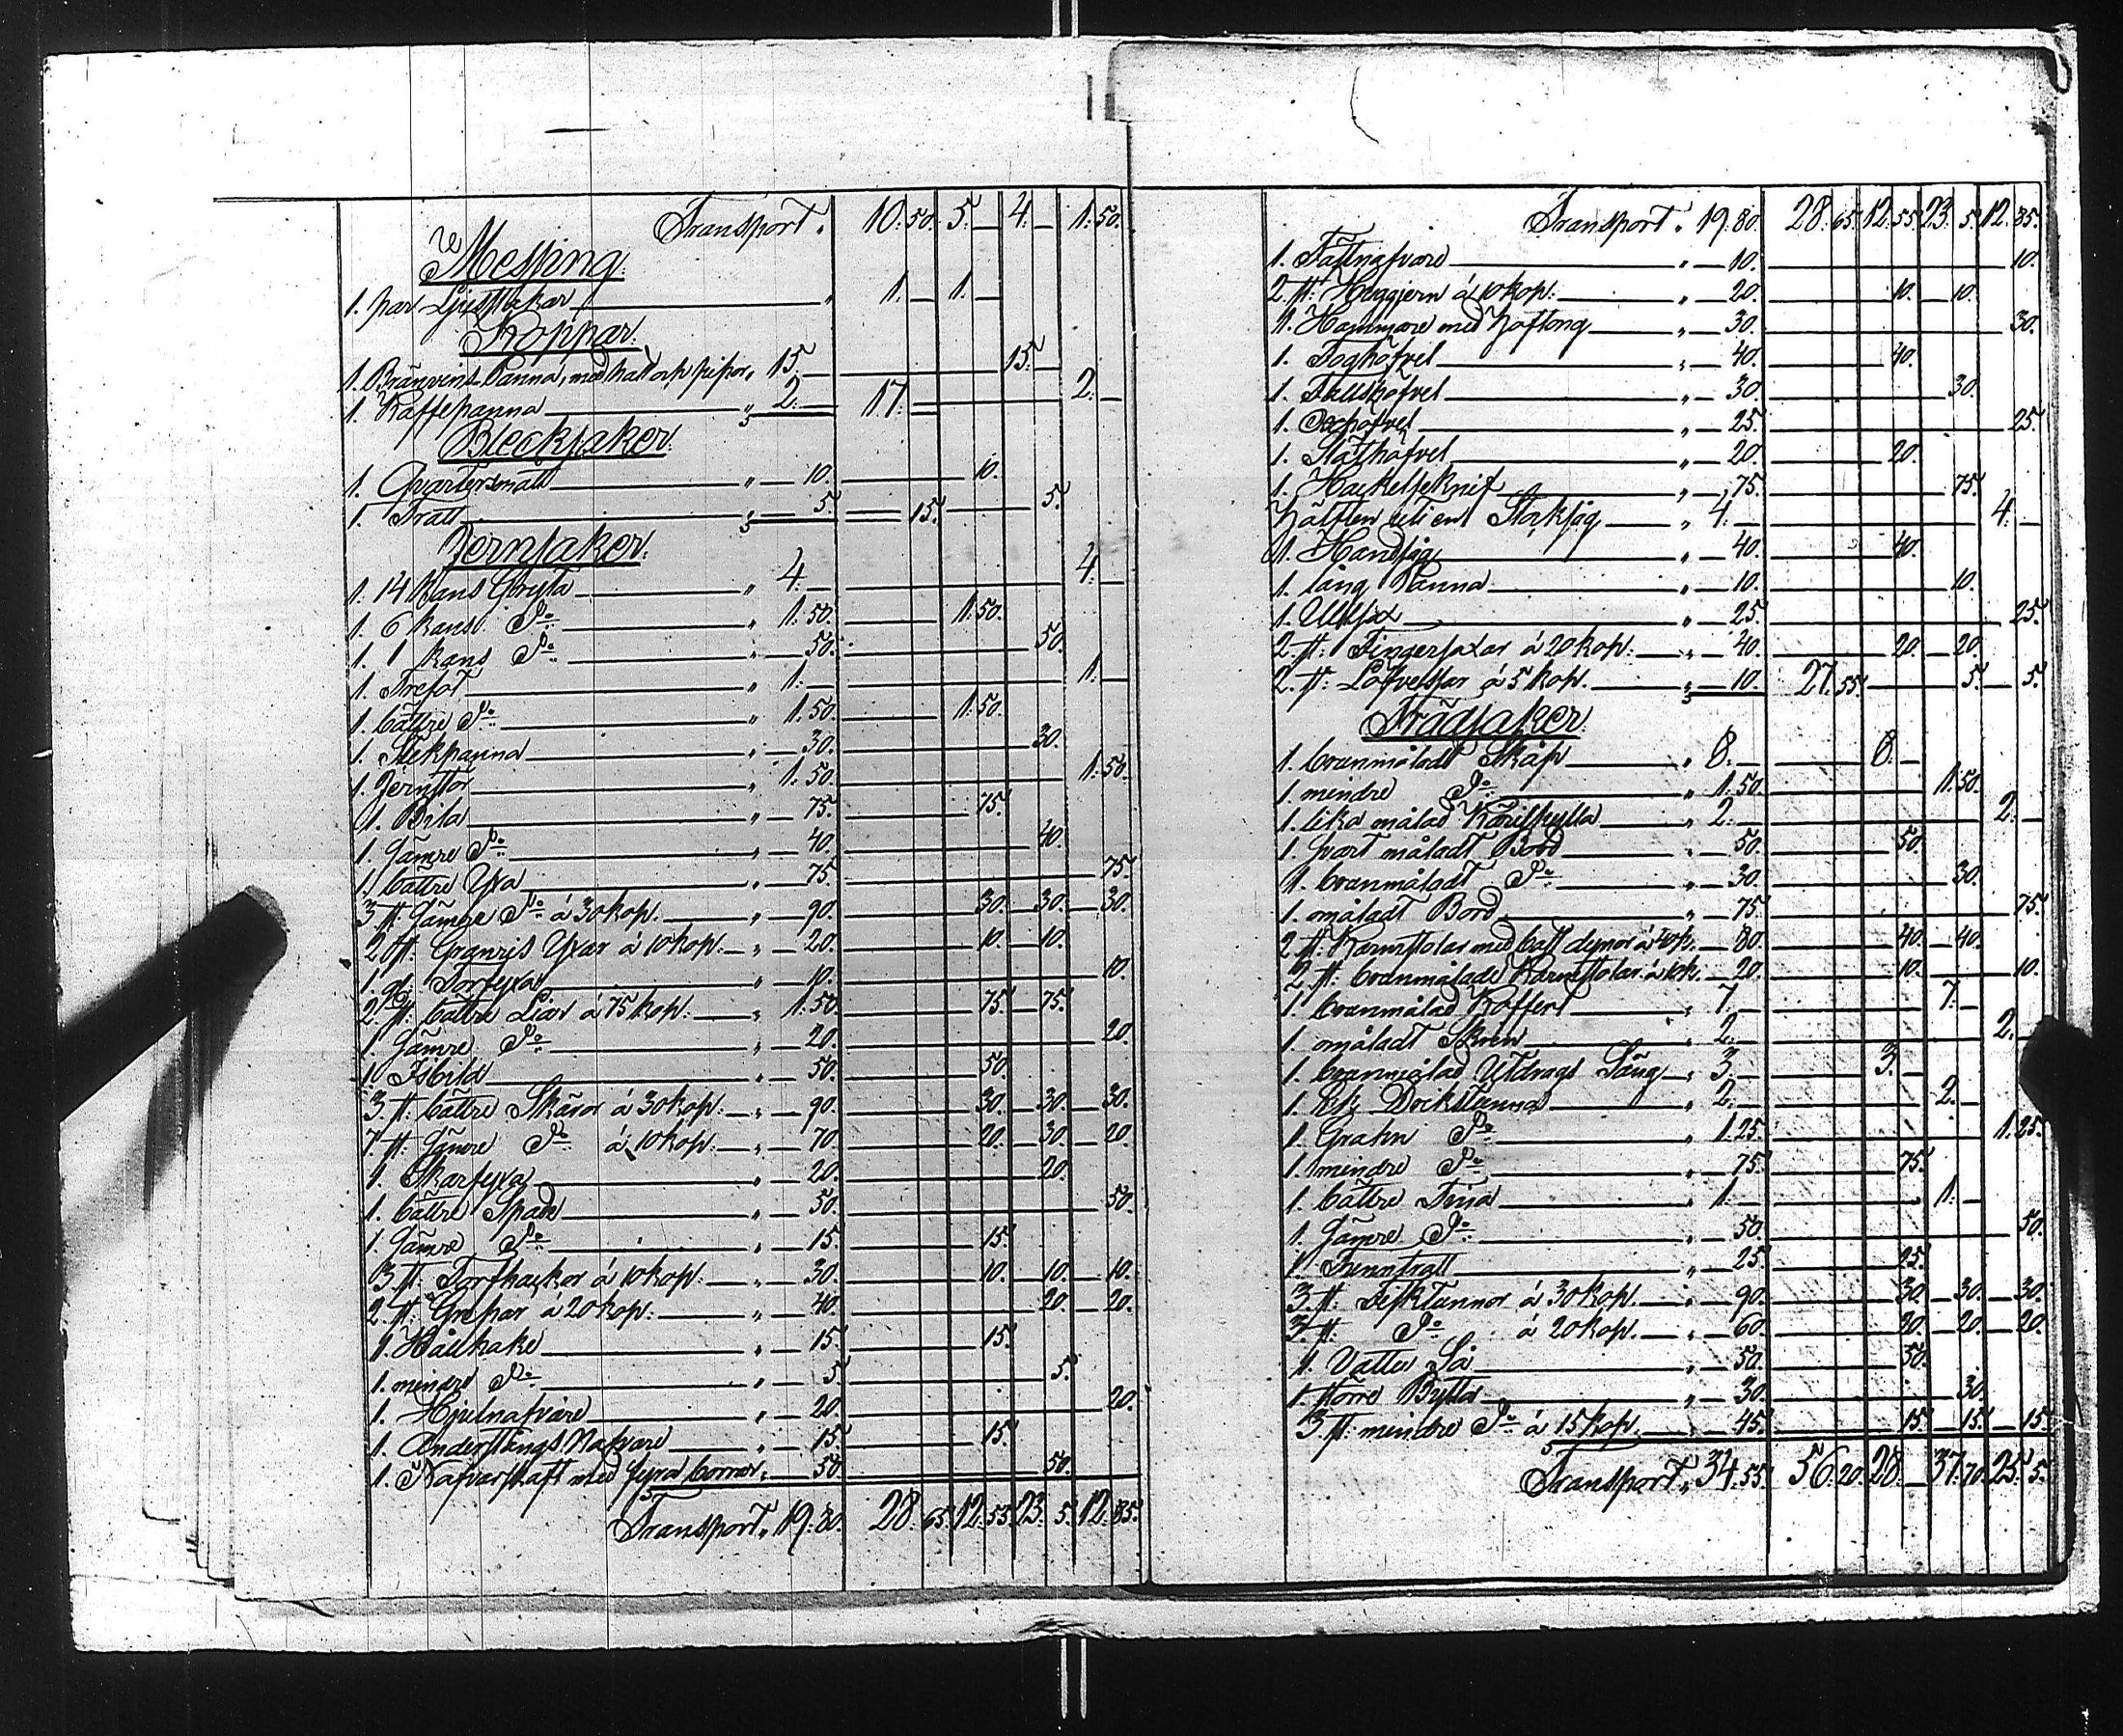 Transport " 10. 50. 5. — 4. — 1. 50.
Messing.
1. par Ljusstakar " 1. — 1. —
Koppar.
1. Bränvins Panna, med hatt och pipor " 15. — 15. —
1. Kaffepanna " 2. — 17. — 2. —
Blecksaker.
1. Qvartersmått " 10. 10.
1. Tratt " 5. 15. 5.
Jernsaker.
1. 14 Kans Gryta " 4. — 4. —
1. 6 kans Do " 1. 50. 1. 50.
1. 1 kans Do " 50. 50.
1. Trefot " 1. — 1. —
1. bättre Do " 1. 50. 1. 50.
1. Stekpanna " 30. 30.
1. Jernstör " 1. 50. 1. 50.
1. Bila " 75. 75.
1. sämre Do " 40. 40.
1. bättre Yxa " 75. 75.
3. st. sämre Do á 30 kop. " 90. 30. 30. 30.
2. st. Granris Yxar á 10 kop. " 20. 10. 10.
1. Torfyxa " 10. 10.
2. st. bättre Liar á 75 kop. " 1. 50. 75. 75.
1. sämre Do " 20. 20.
1. Isbild " 50. 50.
3. st. bättre Skäror á 30 kop. " 90. 30. 30. 30.
7. st. sämre Do á 10 kop. " 70. 20. 30. 20.
1. Skarfyxa " 20. 20.
1. bättre Spade " 50. 50.
1. sämre Do " 15. 15.
3. st. Torfhackor á 10 kop. " 30. 10. 10. 10.
2. st. Grepar á 20 kop. " 40. 20. 20.
1. Hålhake " 15. 15.
1. mindre Do " 5. 5.
1. Hjulnafvare " 20. 20.
1. Anderstångs Nafvare " 15. 15.
1. Nafvarskaft med fyra borrar " 50. 50.
Transport " 19. 80. 28. 65. 12. 55. 23. 5. 12. 85.
Transport " 19. 80. 28. 65. 12. 55. 23. 5. 12. 85.
1. Fattnafvare " 10. 10.
2. st. Huggjern á 10 kop. " 20. 10. 10.
1. Hammare med hoftong " 30. 30.
1. Foghöfvel " 40. 40.
1. Falshöfvel " 30. 30.
1. höfvel " 25. 25.
1. Släthöfvel " 20. 20.
1. Hackelseknif " 75. 75.
hälften uti en Stocksåg " 4. — 4. —
1. Handsåg " 40. 40.
1. lång Panna " 10. 10.
1. Ullsax " 25. 25.
2. st. Fingersaxar á 20 kop. " 40. 20. 20.
2. st. Löfvessar á 5 kop. " 10. 27. 55. 5. 5.
Trädsaker.
1. brunmåladt Skåp " 8. — 8. —
1. mindre Do " 1. 50. 1. 50.
1. lika målad Kärilhylla " 2. — 2. —
1. svart måladt Bord " 50. 50.
1. brunmåladt Do " 30. 30.
1. omåladt Bord " 75. 75.
2. st. Karmstolar med dynor á 40 k. 80. 40. 40.
2. st. brunmålade Karmstolar á 10 k. 20. 10. 10.
1. brunmålad Koffert " 7. — 7. —
1. omåladt Skrin " 2. — 2. —
1. brunmålad Utdrags Säng " 3. — 3. —
1. Ek Dockstanna " 2. — 2. —
1. Grahn Do " 1. 25. 1. 25.
1. mindre Do " 75. 75.
1. bättre Tina " 1. — 1. —
1. sämre Do " 50. 50.
1. Tunntratt " 25. 25.
3. st. Fisktunnor á 30 kop. " 90. 30. 30. 30.
3. st. Do á 20 kop. " 60. 20. 20. 20.
1. Vatten Så " 50. 50.
1. större Bytta " 30. 30.
3. st. mindre Do á 15 kop. " 45. 15. 15. 15.
Transport " 34. 55. 56. 20. 28. — 37. 70. 25. 5.